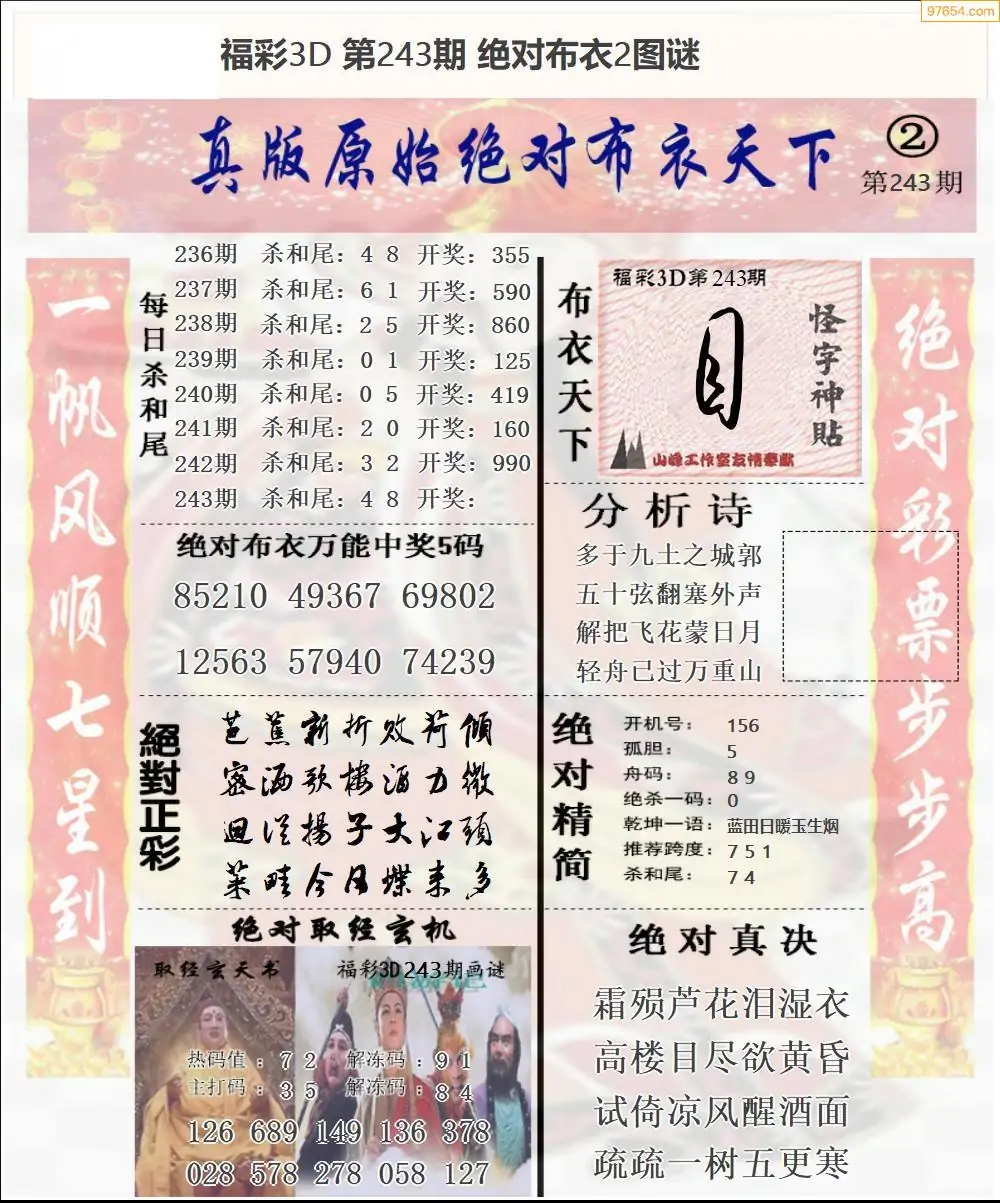 97654.com
福彩3D 第243期 绝对布衣2图谜
真版原始绝对布衣天下
②
第243期
一帆风顺七星到
每日杀和尾
236期 杀和尾：4 8 开奖：355
237期 杀和尾：6 1 开奖：590
238期 杀和尾：2 5 开奖：860
239期 杀和尾：0 1 开奖：125
240期 杀和尾：0 5 开奖：419
241期 杀和尾：2 0 开奖：160
242期 杀和尾：3 2 开奖：990
243期 杀和尾：4 8 开奖：
绝对布衣万能中奖5码
85210 49367 69802
12563 57940 74239
絕對正彩
芭蕉新折败荷倾
密洒歌楼酒力微
迴从揚子大江頭
菜畦今日蝶来多
绝对取经玄机
取经玄天书
福彩3D243期画谜
热码值：7 2 解冻码：9 1
主打码：3 5 解冻码：8 4
126 689 149 136 378
028 578 278 058 127
布衣天下
福彩3D第243期
怪字神貼
山峰工作室友情奉献
分析诗
多于九土之城郭
五十弦翻塞外声
解把飞花蒙日月
轻舟已过万重山
绝对精简
开机号：156
孤胆：5
舟码：8 9
绝杀一码：0
乾坤一语：蓝田日暖玉生烟
推荐跨度：7 5 1
杀和尾：7 4
绝对真决
霜殒芦花泪湿衣
高楼目尽欲黄昏
试倚凉风醒酒面
疏疏一树五更寒
绝对彩票步步高